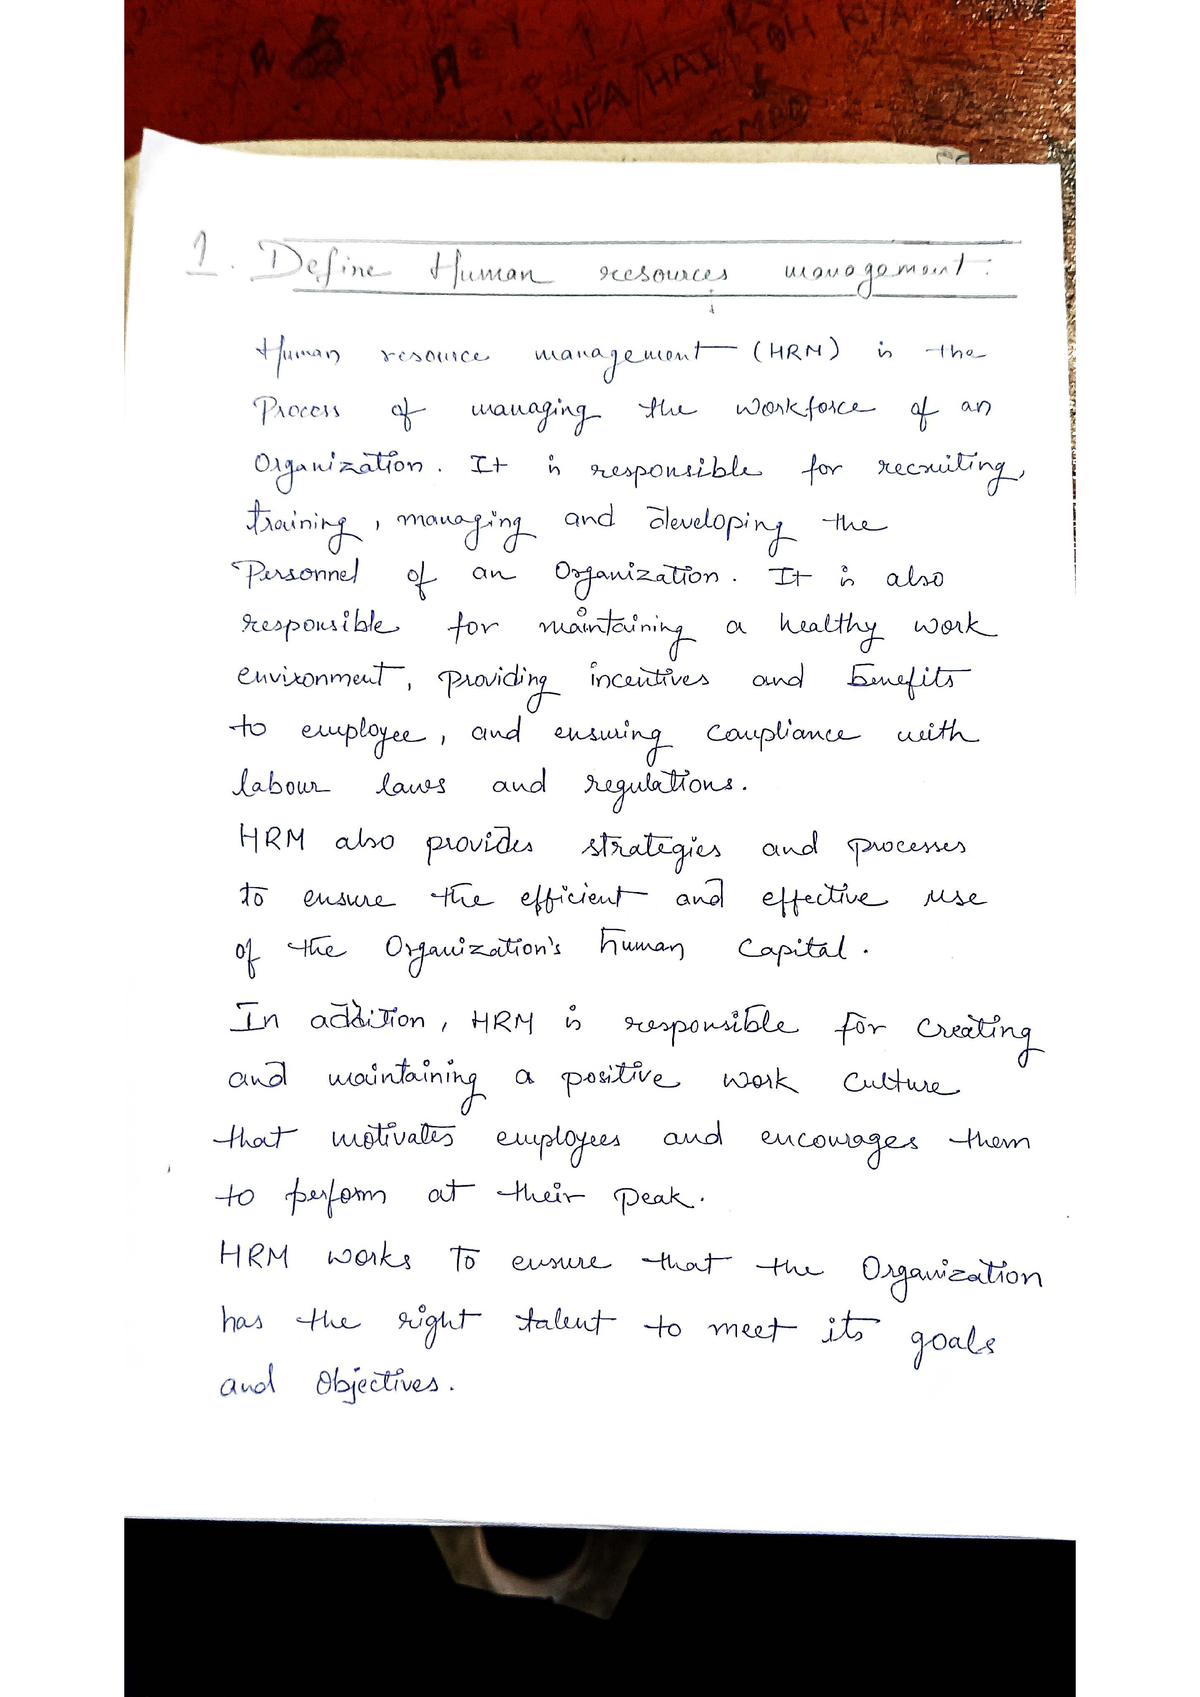 HAI TOH KYA
1. Define Human resources management:
Human resource management (HRM) is the
Process of managing the workforce of an
Organization. It is responsible for recruiting,
training, managing and developing the
Personnel of an Organization. It is also
responsible for maintaining a healthy work
environment, providing incentives and benefits
to employee, and ensuring compliance with
labour laws and regulations.
HRM also provides strategies and processes
to ensure the efficient and effective use
of the Organization's human Capital.
In addition, HRM is responsible for Creating
and maintaining a positive work Culture
that motivates employees and encourages them
to perform at their peak.
HRM works to ensure that the Organization
has the right talent to meet its goals
and Objectives.